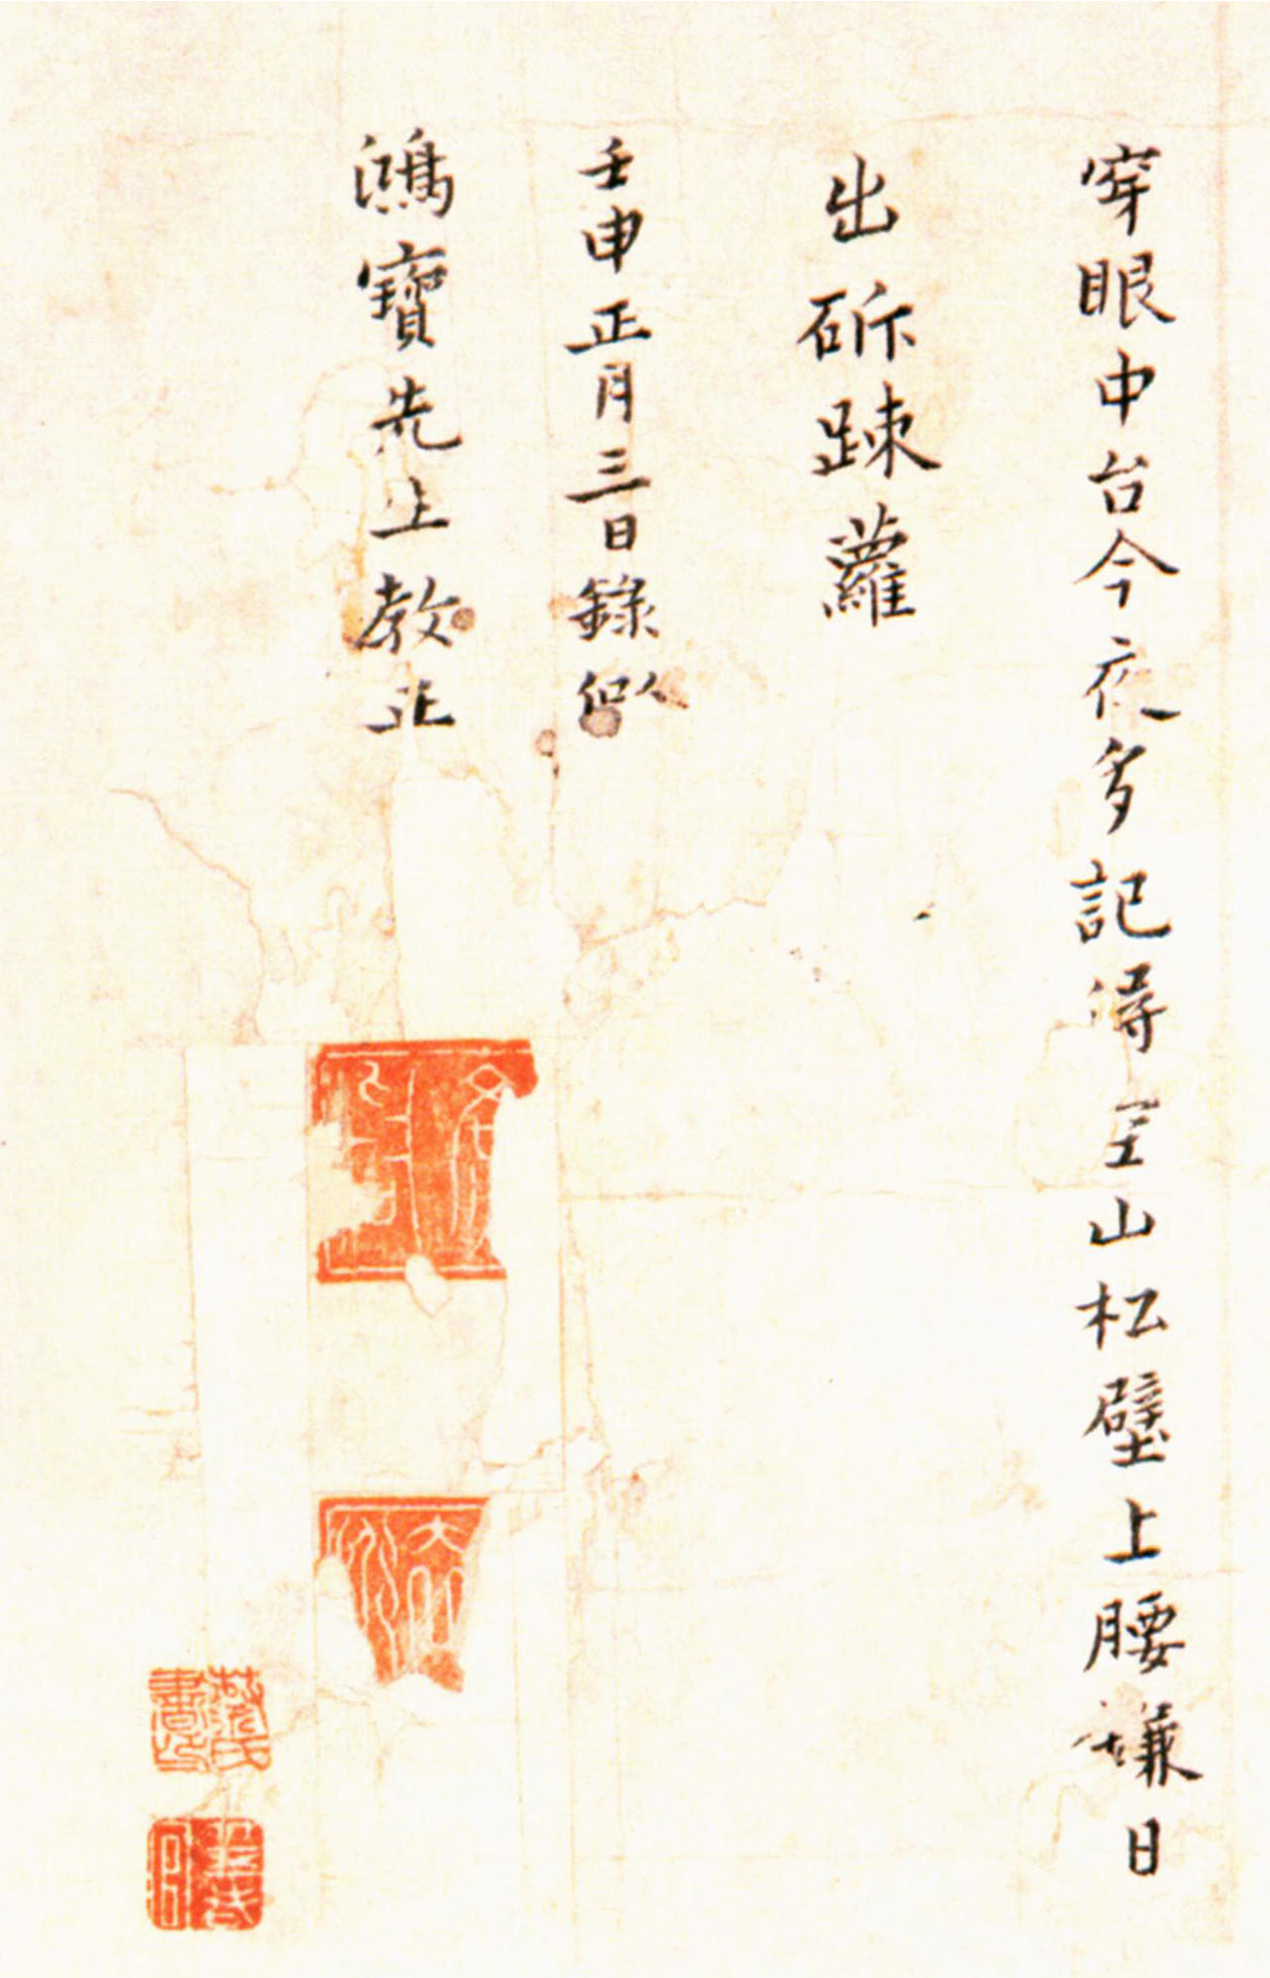 穿眼中台今夜多記得匡山松壁上腰鎌日
出斫踈蘿
壬申正月三日錄似
鴻寶先生教正